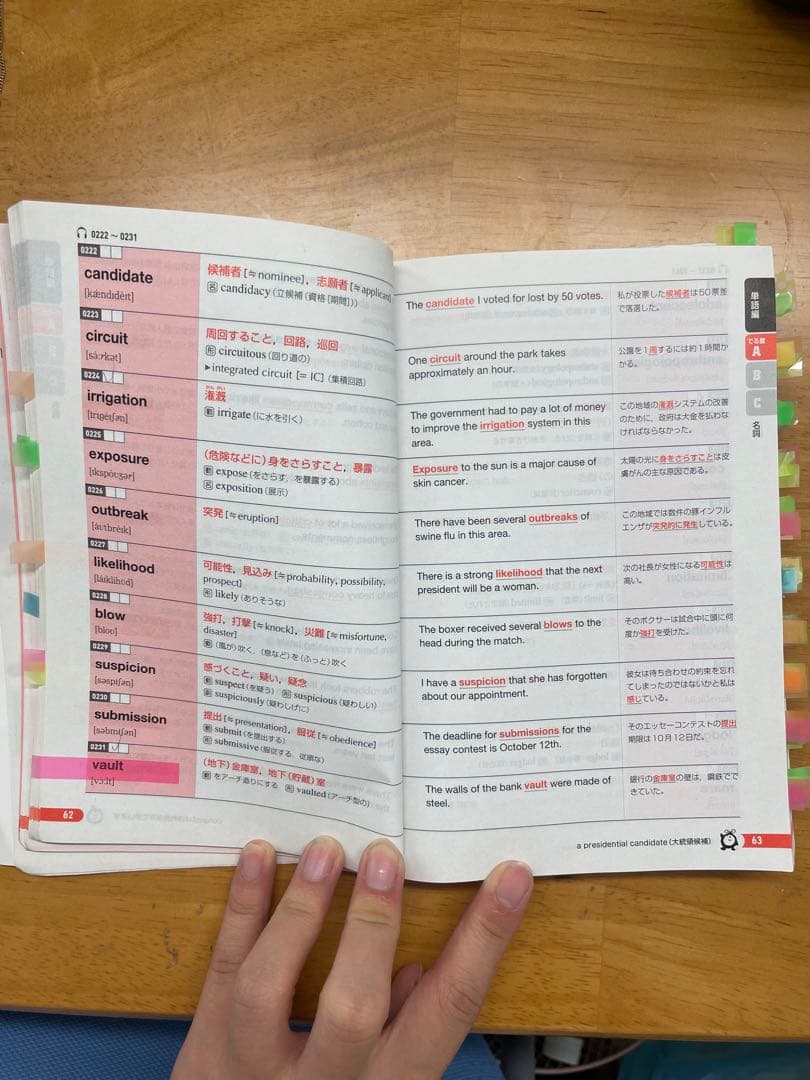 0222～0231
0222
candidate
[kǽndɪdèɪt]
候補者 [≒nominee], 志願者 [≒applicant]
名 candidacy (立候補 (資格 [期間]))
0223
circuit
[sə́ːrkət]
周回すること, 回路, 巡回
形 circuitous (回り道の)
▶integrated circuit [= IC] (集積回路)
0224
irrigation
[ìrɪgéɪʃən]
かん がい
灌漑
動 irrigate (に水を引く)
0225
exposure
[ɪkspóʊʒər]
(危険などに) 身をさらすこと, 暴露
動 expose (をさらす, を暴露する)
名 exposition (展示)
0226
outbreak
[áʊtbrèɪk]
突発 [≒eruption]
0227
likelihood
[láɪklihʊ̀d]
可能性, 見込み [≒probability, possibility,
prospect]
形 likely (ありそうな)
0228
blow
[bloʊ]
強打, 打撃 [≒knock], 災難 [≒misfortune,
disaster]
動 (風が) 吹く, (息など) を (ふっと) 吹く
0229
suspicion
[səspíʃən]
感づくこと, 疑い, 疑念
動 suspect (を疑う) 形 suspicious (疑わしい)
副 suspiciously (疑わしげに)
0230
submission
[səbmíʃən]
提出 [≒presentation], 服従 [≒obedience]
動 submit (を提出する)
形 submissive (服従する, 従順な)
0231
vault
[vɔːlt]
(地下) 金庫室, 地下 (貯蔵) 室
動 をアーチ造りにする 形 vaulted (アーチ型の)
62
The candidate I voted for lost by 50 votes.
私が投票した候補者は50票差
で落選した。
One circuit around the park takes
approximately an hour.
公園を1周するには約1時間か
かる。
The government had to pay a lot of money
to improve the irrigation system in this
area.
この地域の灌漑システムの改善
のために, 政府は大金を払わな
ければならなかった。
Exposure to the sun is a major cause of
skin cancer.
太陽の光に身をさらすことは皮
膚がんの主な原因である。
There have been several outbreaks of
swine flu in this area.
この地域では数件の豚インフル
エンザが突発的に発生している。
There is a strong likelihood that the next
president will be a woman.
次の社長が女性になる可能性は
高い。
The boxer received several blows to the
head during the match.
そのボクサーは試合中に頭に何
度か強打を受けた。
I have a suspicion that she has forgotten
about our appointment.
彼女は待ち合わせの約束を忘れ
てしまったのではないかと私は
感じている。
The deadline for submissions for the
essay contest is October 12th.
そのエッセーコンテストの提出
期限は10月12日だ。
The walls of the bank vault were made of
steel.
銀行の金庫室の壁は, 鋼鉄ででき
きていた。
単語編
でる度
A
B
C
名詞
a presidential candidate (大統領候補)
63